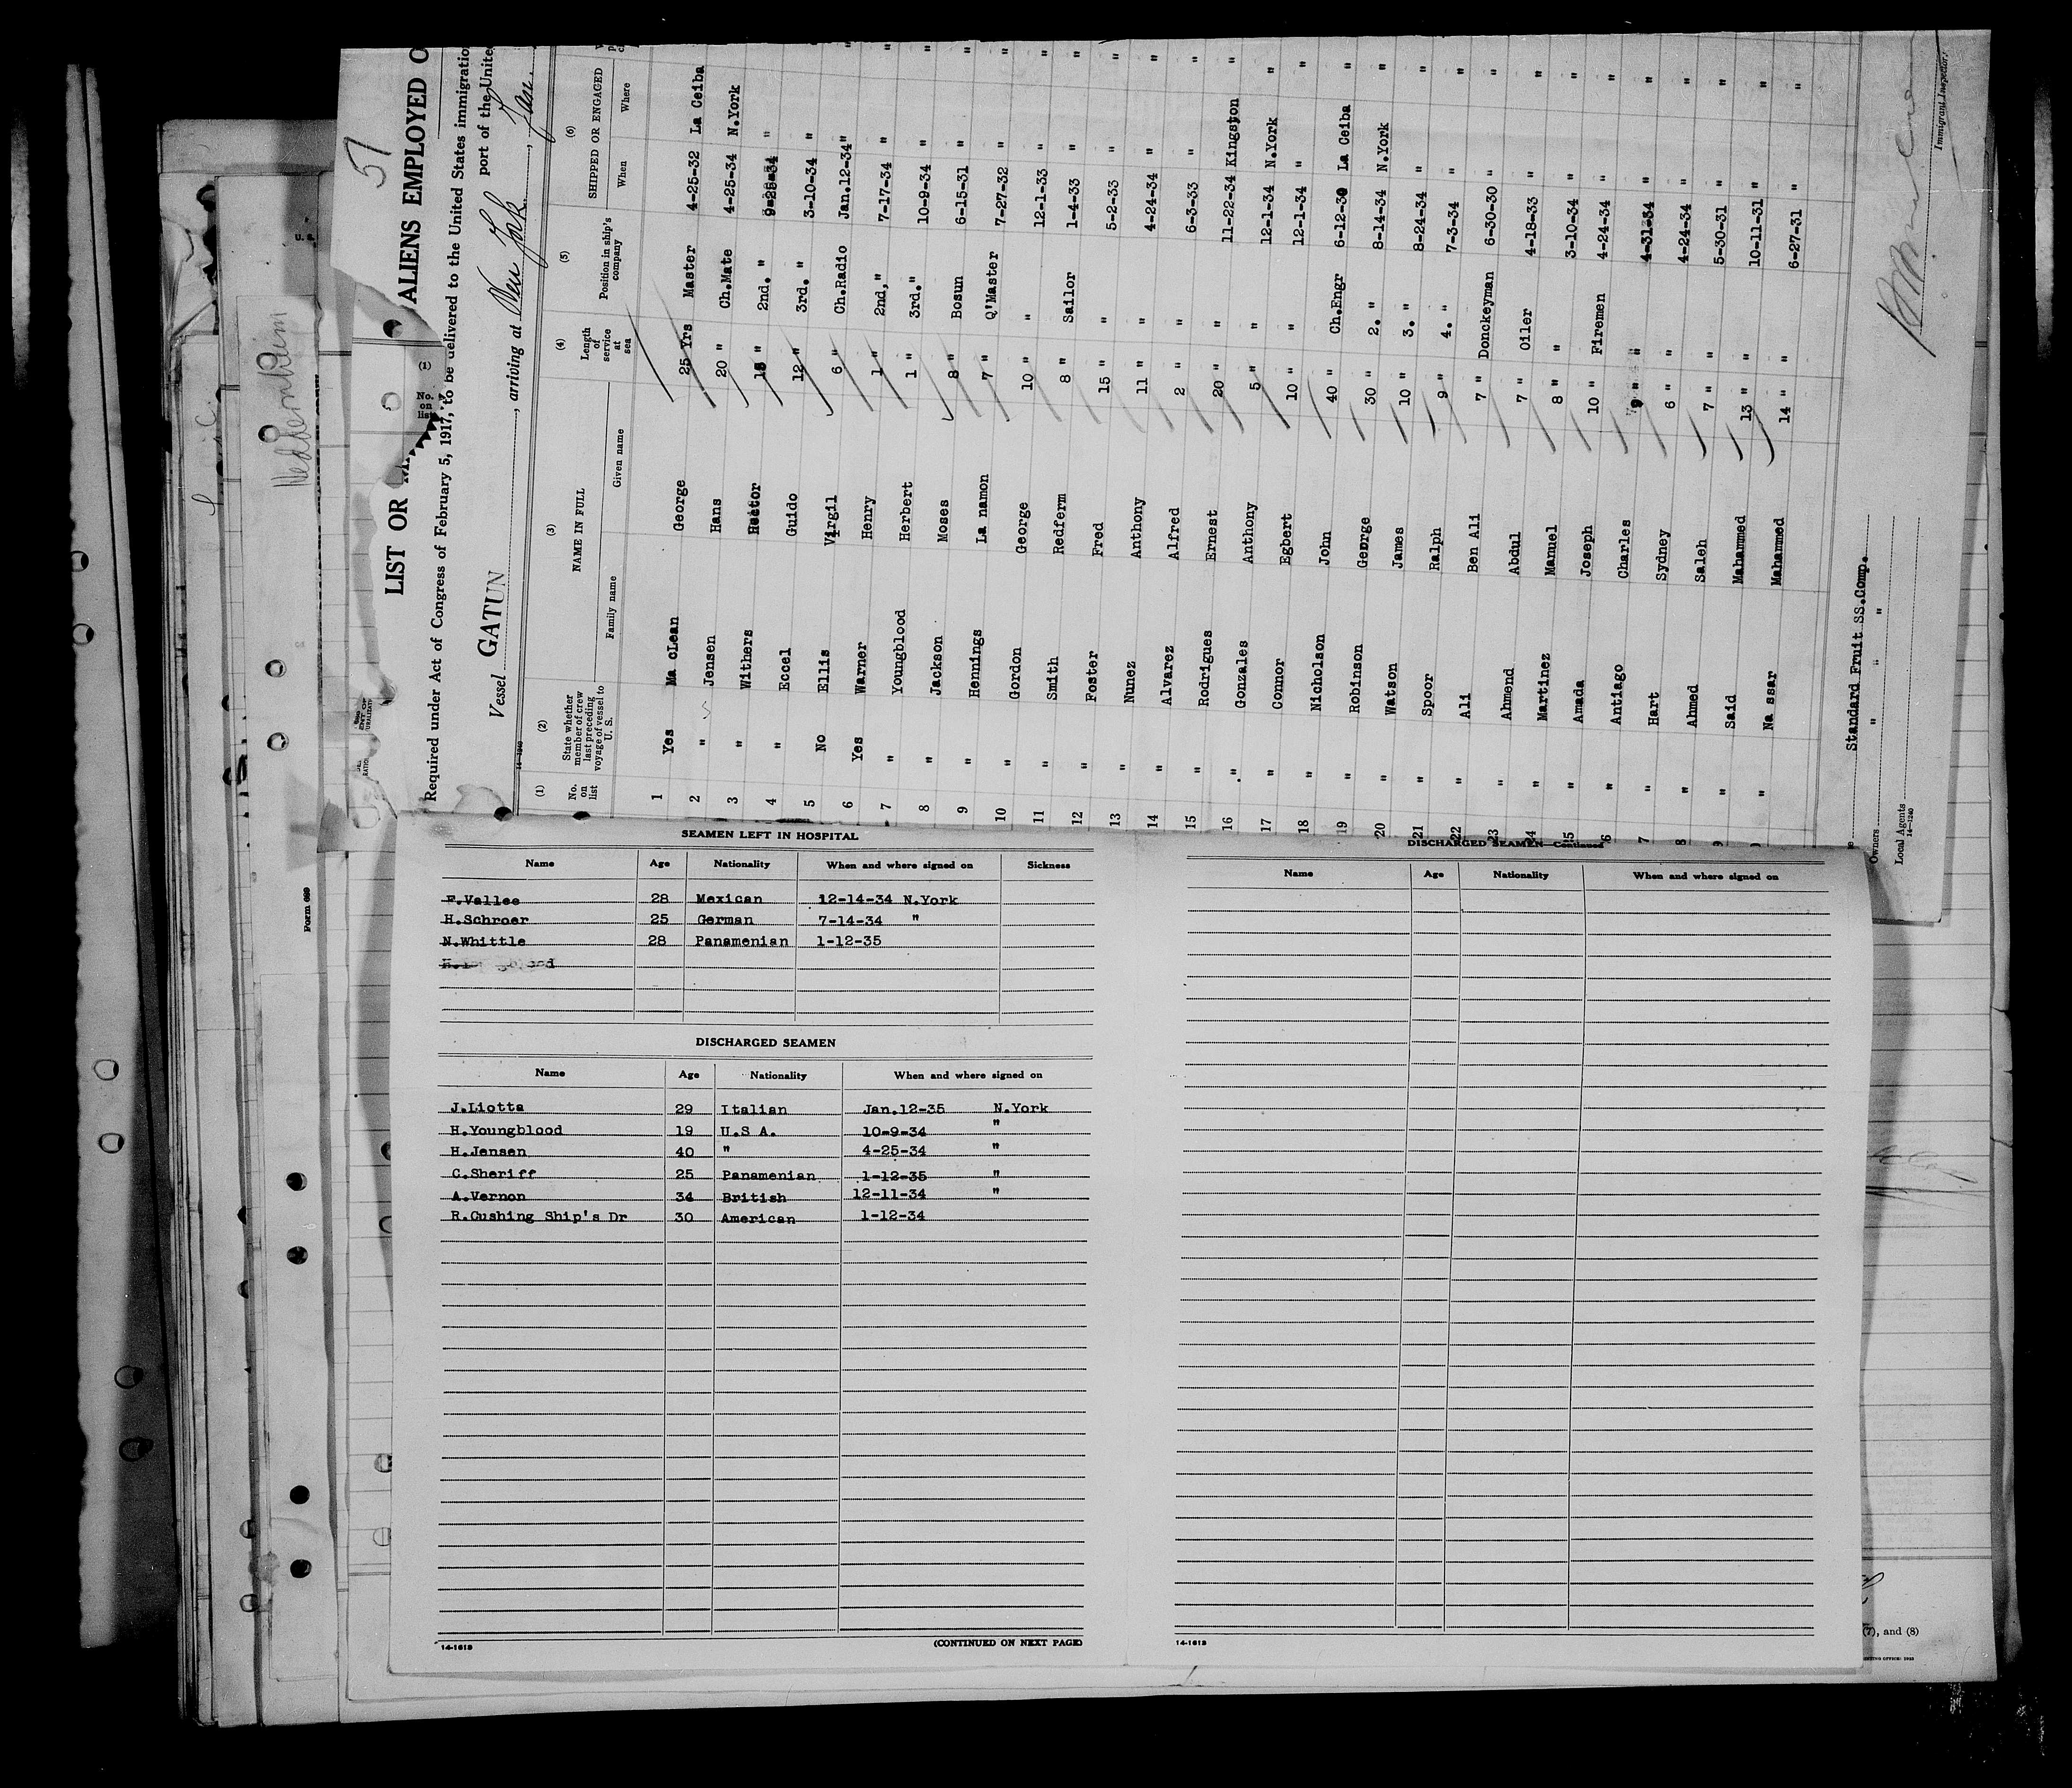 57
LIST OR
ALIENS EMPLOYED O
Required under Act of Congress of February 5, 1917, to be delivered to the United States immigration
port of the United
Vessel GATUN, arriving at New York, Jan.
(1) No. on list
(2) State whether member of crew last preceding voyage of vessel to U. S.
(3) NAME IN FULL
Family name Given name
(4) Length of service at sea
(5) Position in ship's company
(6) SHIPPED OR ENGAGED
When Where
1 Yes Ma cLean George 25 Yrs Master 4-25-32 La Ceiba "
2 " Jensen Hans 20 " Ch.Mate 4-25-34 N.York "
3 " Withers Hector " 2nd. " "
4 " Eccel Guido 12 " 3rd. " 3-10-34 " "
5 No Ellis Virgil 6 " Ch.Radio Jan.12-34 " "
6 Yes Warner Henry 1 " 2nd, " 7-17-34 " "
7 " Youngblood Herbert 1 " 3rd. " 10-9-34 " "
8 " Jackson Moses 8 " Bosun 6-15-31 " "
9 " Hennings La namon 7 " Q'Master 7-27-32 " "
10 " Gordon George 10 " " 12-1-33 " "
11 " Smith Redferm 8 " Sailor 1-4-33 " "
12 " Foster Fred 15 " " 5-2-33 " "
13 " Nunez Anthony 11 " " 4-24-34 " "
14 " Alvarez Alfred 2 " " 6-3-33 " "
15 " Rodrigues Ernest 20 " " 11-22-34 Kingston "
16 " Gonzales Anthony 5 " " 12-1-34 N.York "
17 " Connor Egbert 10 " " 12-1-34 " "
18 " Nicholson John 40 " Ch.Engr 6-12-30 La Ceiba "
19 " Robinson George 30 " 2. " 8-14-34 N.York "
20 " Watson James 10 " 3. " 8-24-34 " "
21 " Spoor Ralph 9 " 4. " 7-3-34 " "
22 " Ali Ben Ali 7 " Donckeyman 6-30-30 " "
23 " Ahmend Abdul 7 " Oiler 4-18-33 " "
24 " Martinez Manuel 8 " " 3-10-34 " "
25 " Amada Joseph 10 " Firemen 4-24-34 " "
6 " Antiago Charles 9 " " 4-31-34 " "
7 " Hart Sydney 6 " " 4-24-34 " "
8 " Ahmed Saleh 7 " " 5-30-31 " "
9 " Said Mahammed 13 " " 10-11-31 " "
" Na ssar Mahammed 14 " " 6-27-31 " "
Standard Fruit SS.Comp.
Owners " " "
Local Agents
14-1240
Immigrant Inspector.
Form 689
SEAMEN LEFT IN HOSPITAL
Name Age Nationality When and where signed on Sickness
F.Vallee 28 Mexican 12-14-34 N.York
H.Schroer 25 German 7-14-34 "
N.Whittle 28 Panamenian 1-12-35
DISCHARGED SEAMEN
Name Age Nationality When and where signed on
J.Liotta 29 Italian Jan.12-35 N.York
H.Youngblood 19 U.S A. 10-9-34 "
H.Jensen 40 " 4-25-34 "
C.Sheriff 25 Panamenian 1-12-35 "
A.Vernon 34 British 12-11-34 "
R.Cushing Ship's Dr 30 American 1-12-34
14-1613 (CONTINUED ON NEXT PAGE)
DISCHARGED SEAMEN—Continued
Name Age Nationality When and where signed on
14-1613
(7), and (8)